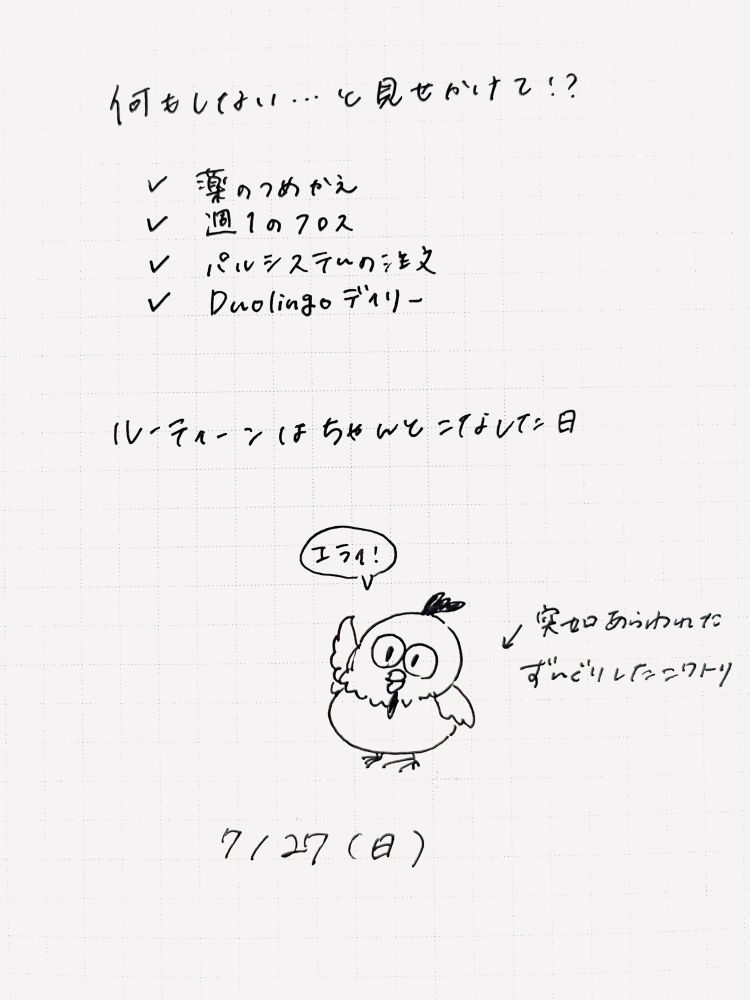 何もしない…と見せかけて!?
✓ 薬のつめかえ
✓ 週1のフロス
✓ パルシステムの注文
✓ Duolingoデイリー
ルーティーンはちゃんとこなした日
エライ!
↙ 突如あらわれた
ずんぐりしたニワトリ
7/27(日)